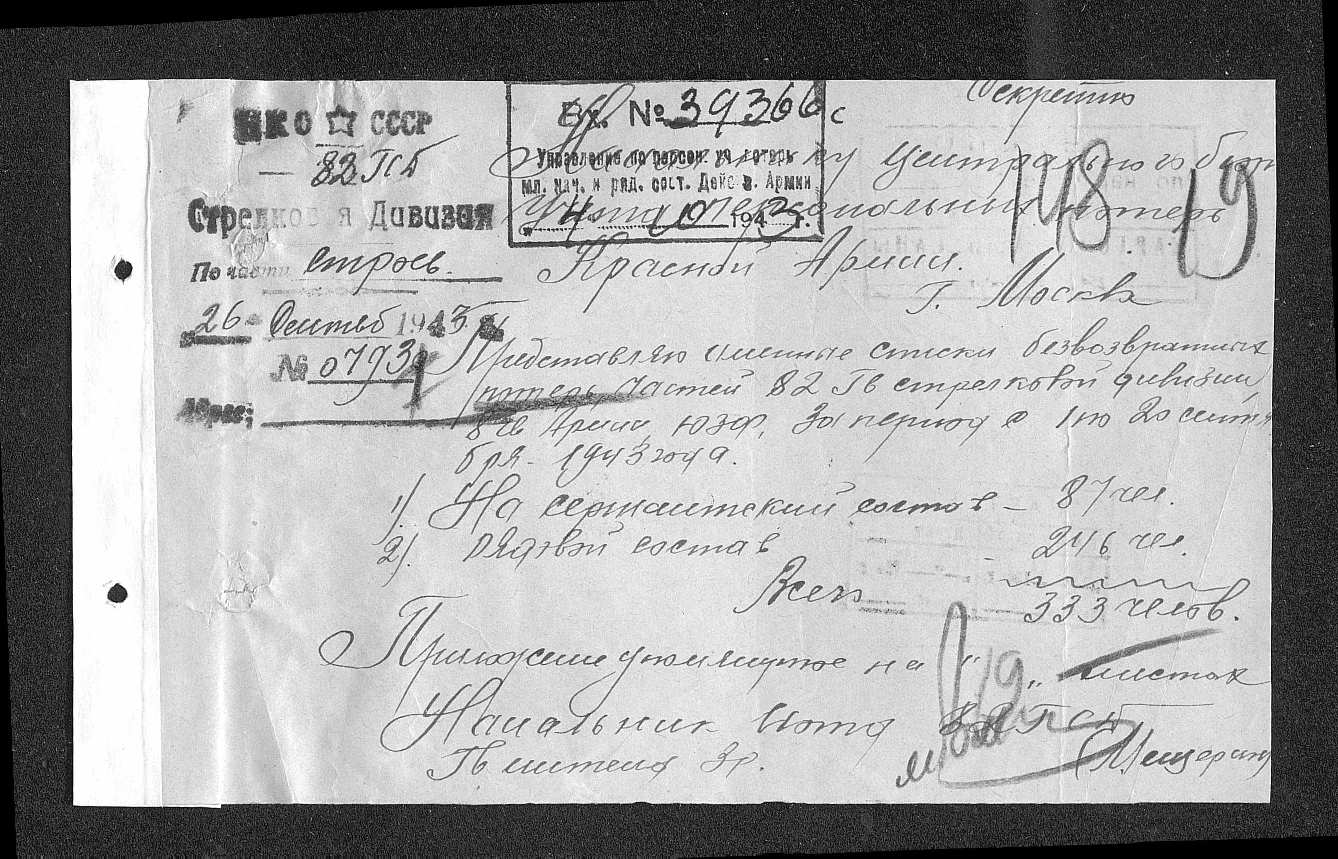 Секретно
НКО СССР
82 ГСД
Стрелковая Дивизия
По части строев.
"26" Сентяб 1943 г.
№ 0793
Адрес:
Вх. № 39366 с
Управление по персон. уч. потерь
мл. нач. и ряд. сост. Дейс в. Армии
"4" 10 1943 г.
148 19
Начальнику Центрального бюро
учета персональных потерь
Красной Армии.
г. Москва
Представляю именные списки безвозвратных
потерь частей 82 Гв стрелковой дивизии,
8 Гв Армии ЮЗФ, за период с 1 по 20 сентя
бря 1943 года.
1). На сержантский состав – 87 чел.
2). Рядовой состав – 246 чел.
Всего 333 челов.
Приложение упомянутое на "19" листах
Начальник 82 ГСД
Гв (Мещерин